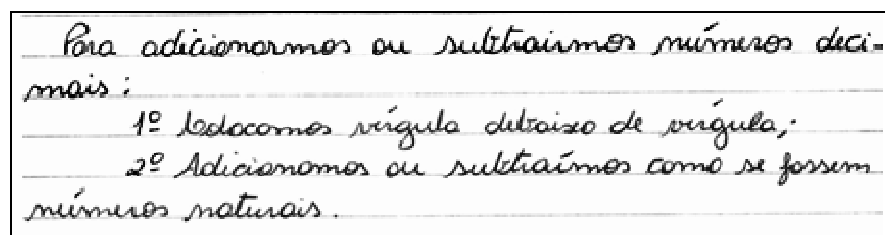 Para adicionarmos ou subtrairmos números deci=
mais:
1º Colocamos vírgula debaixo de vírgula;
2º Adicionamos ou subtraímos como se fossem
números naturais.